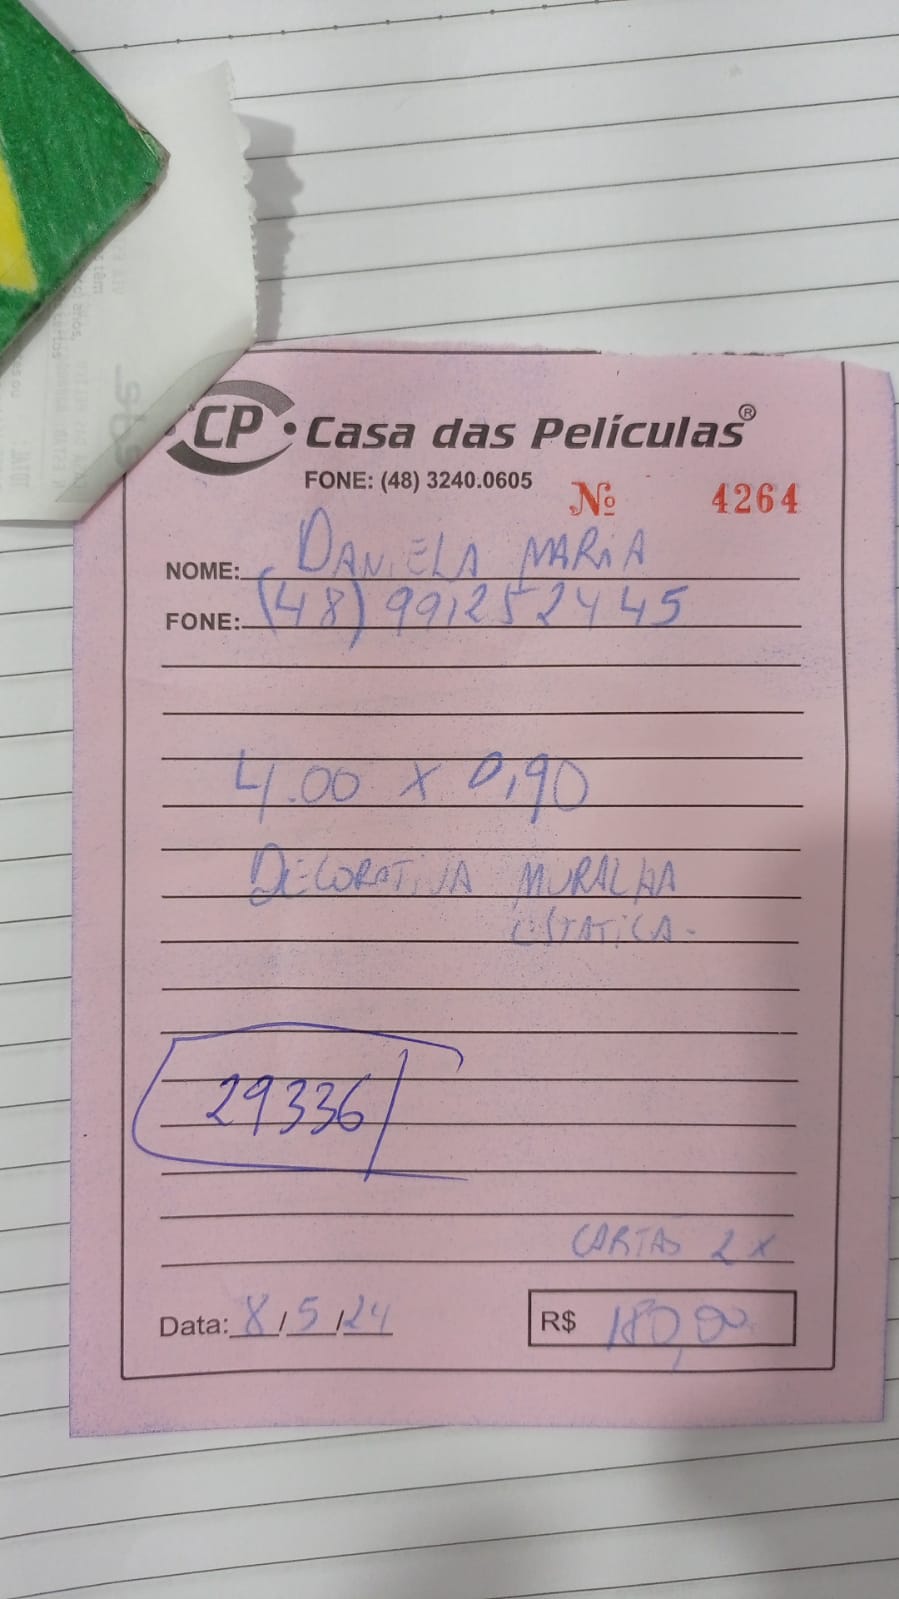 CP Casa das Películas®
FONE: (48) 3240.0605
Nº 4264
NOME: DANIELA MARIA
FONE: (48) 991252445
4.00 x 0,90
DECORATIVA MURALHA
ESTATICA-
29336
CARTÃO 2x
Data: 8/5/24 R$ 180,00